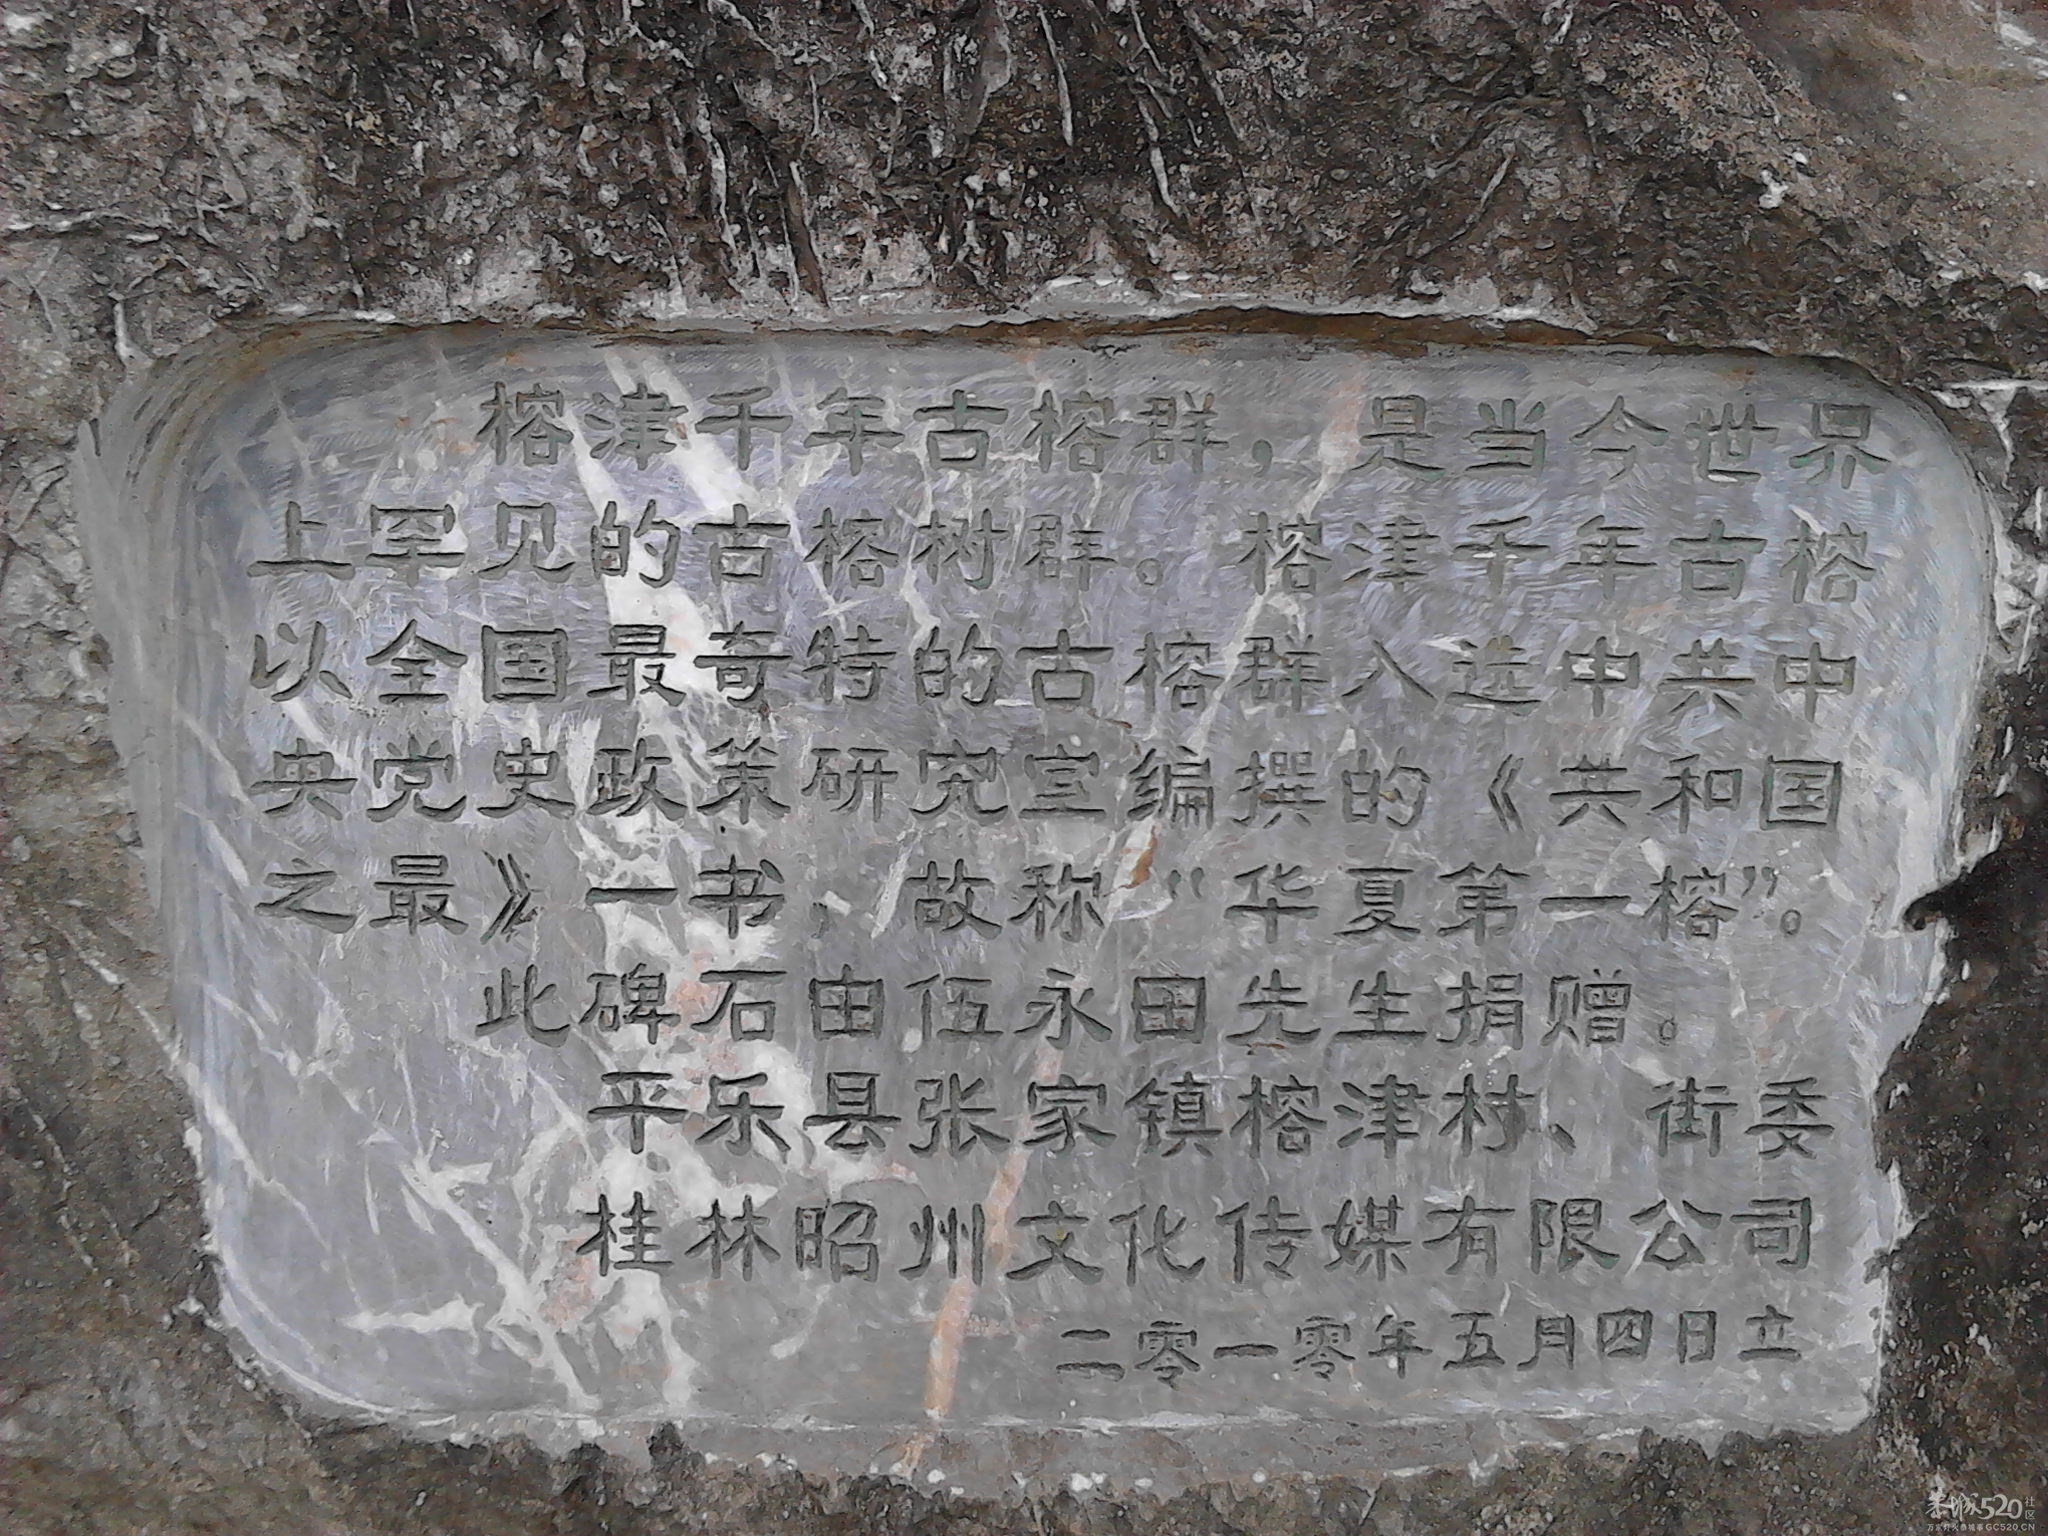 榕津千年古榕群，是当今世界
上罕见的古榕树群。榕津千年古榕
以全国最奇特的古榕群入选中共中
央党史政策研究室编撰的《共和国
之最》一书，故称“华夏第一榕”。
此碑石由伍永田先生捐赠。
平乐县张家镇榕津村、街委
桂林昭州文化传媒有限公司
二零一零年五月四日立
恭城520社区
万家灯火恭城事GC520.CN